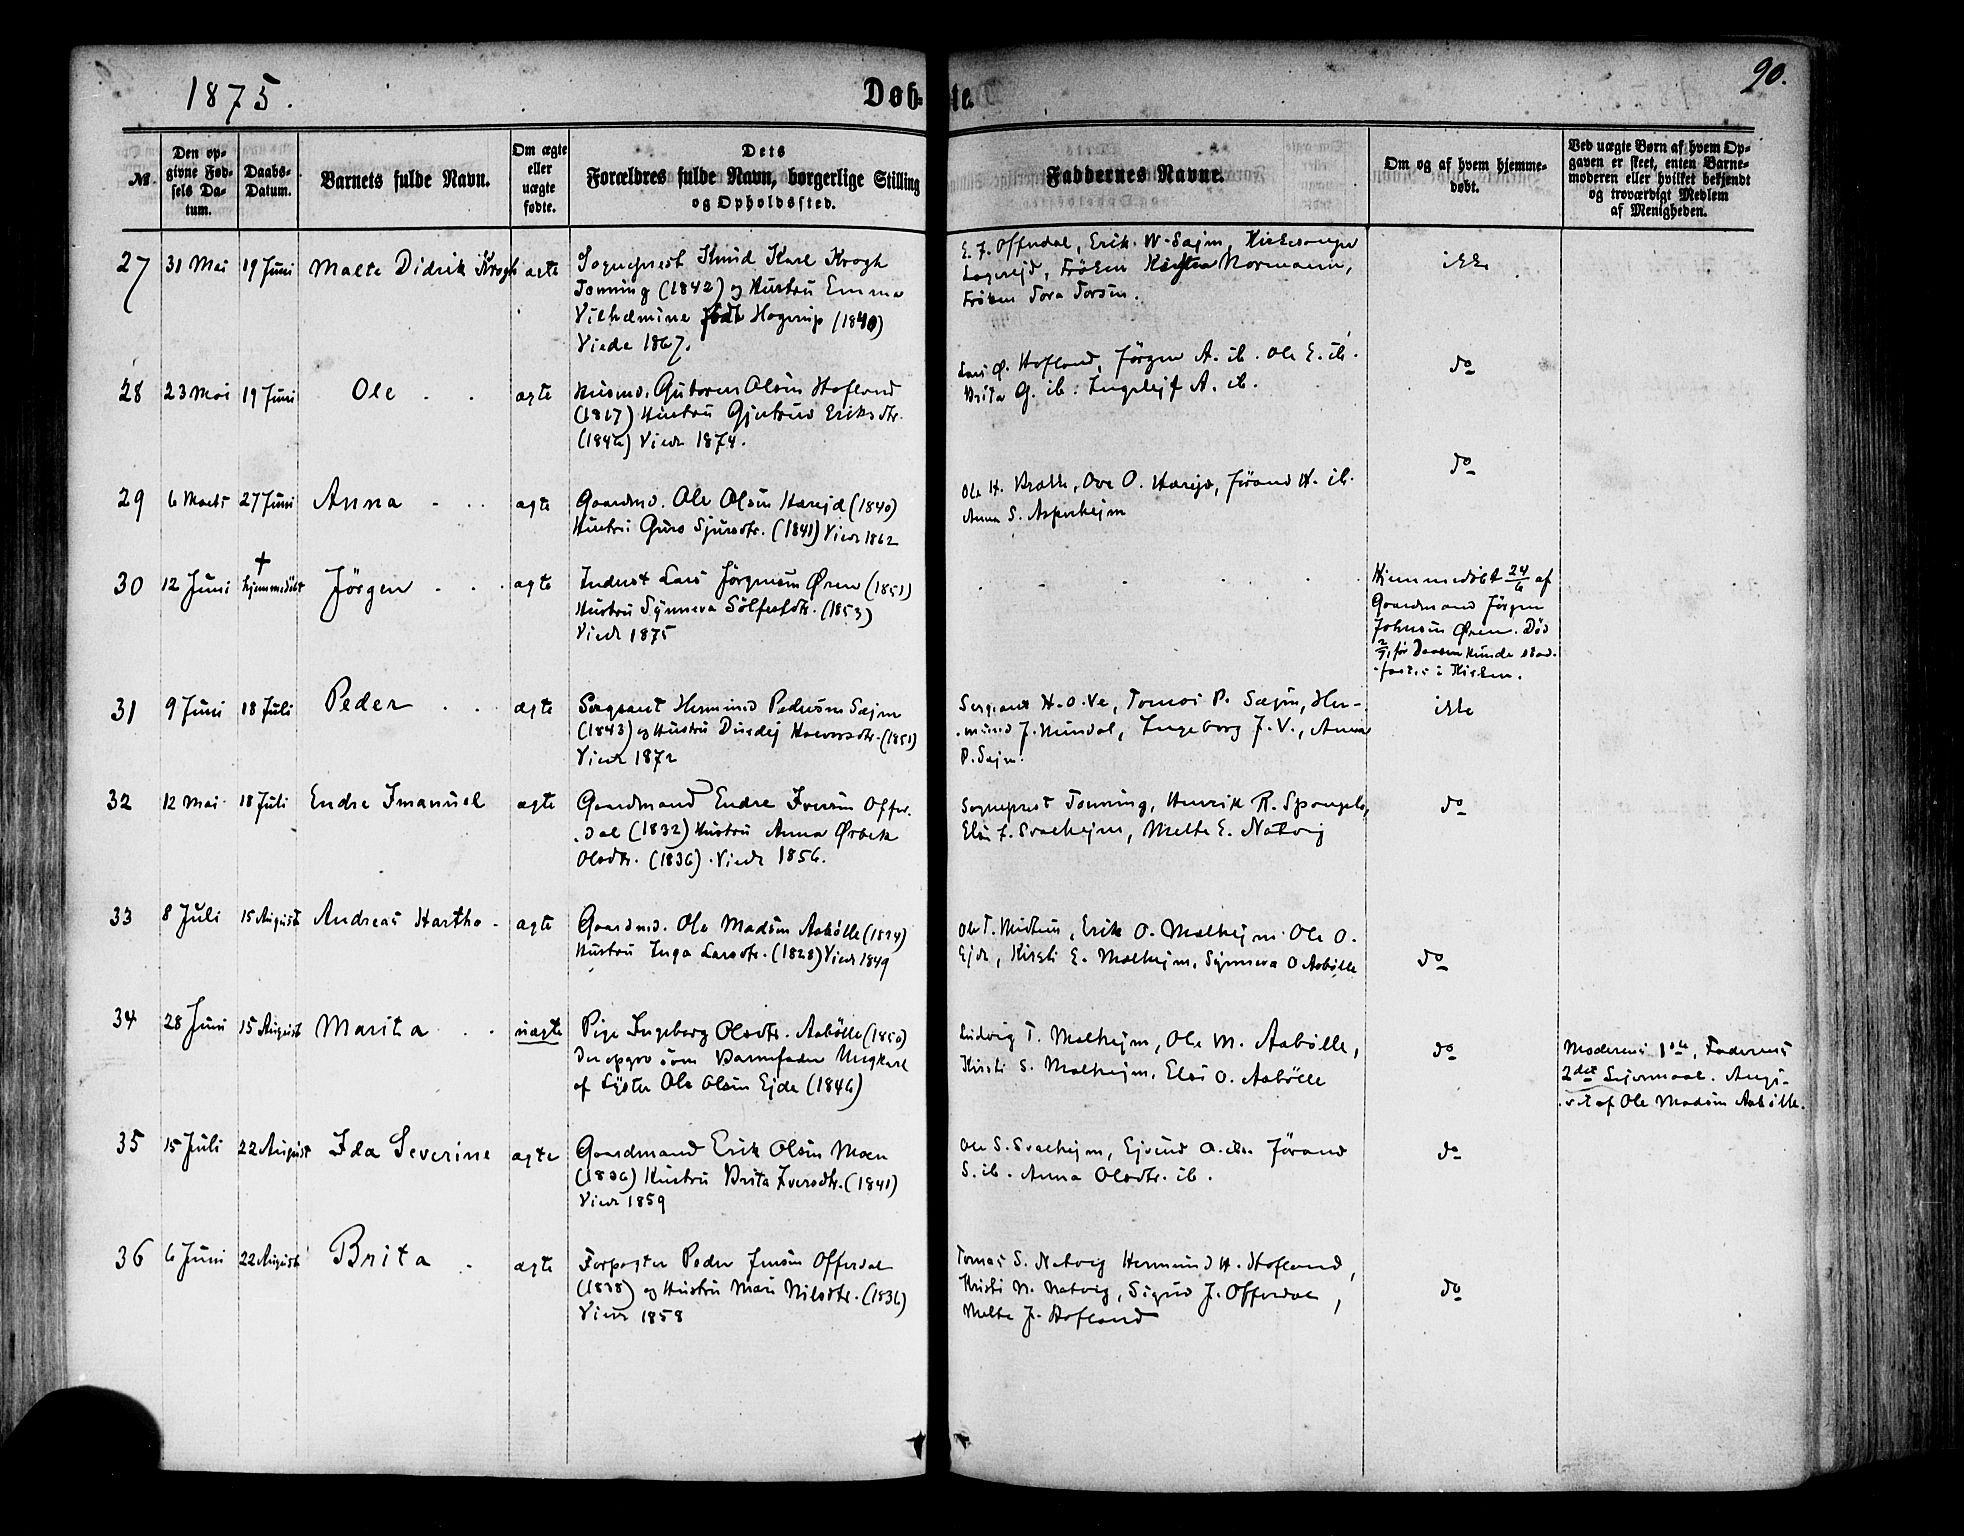 1875.
Døb-
te.
90.
№
Den op-
givne Fød-
sels Da-
tum.
Daabs-
Datum.
Barnets fulde Navn.
Om ægte
eller
uægte
fødte.
Dets
Forældres fulde Navn, borgerlige Stilling
og Opholdssted.
Faddernes Navne.
Om og af hvem hjemme-
døbt.
Ved uægte Børn af hvem Op-
gaven er skeet, enten Barne-
moderen eller hvilket bekjendt
og troværdigt Medlem
af Menigheden.
27 31 Mai 19 Juni Malte Didrik Krogh ægte
Sogneprest Knud Karl Krogh
Tonning (1842) og Hustru Emma
Vilhelmine født Hagerup (1840)
Viede 1867.
E. J. Offerdal, Erik W. Sajm, Kirkesanger
Lagrejd, Frøken Normann,
Frøken Tora Torsen.
ikke
28 23 Mai 19 Juni Ole ægte
Husmd. Gutorm Olsen Hofland
(1817) Hustru Gjertrud Eriksdtr.
(1846) Viede 1874.
Lars O. Hofland, Jørgen A. ib. Ole E. ib.
Brita G. ib. Ingelejf A. ib.
do
29 6 Marts 27 Juni Anna ægte
Gaardmd. Ole Olsen Hærejd (1840)
Hustru Guro Sjursdtr. (1841) Viede 1862
Ole H. Bratte, Ove O. Hærejd, Jørand H. ib.
Anna S. Asperhejm
do
30 12 Juni † hjemmedøbt Jørgen ægte
Inderst Lars Jørgensen Øren (1851)
Hustru Synneva Sølfestdtr. (1853)
Viede 1875
Hjemmedøbt 24/6 af
Gaardmand Jørgen
Johnsen Øren. Død
2/7, før Daaben kunde stad-
fæstes i Kirken.
31 9 Juni 18 Juli Peder ægte
Sergeant Hermund Pedersen Sæjm
(1843) og Hustru Durdej Haavardsdtr. (1851)
Viede 1872
Sergeant H. O. Ve, Tomas P. Sæjm, Her-
mund J. Mundal, Ingeborg J. V., Anna
P. Sajm.
ikke
32 12 Mai 18 Juli Endre Imanuel ægte
Gaardmand Endre Iversen Offer-
dal (1832) Hustru Anna Ørbek
Olsdtr. (1836). Viede 1856.
Sogneprest Tonning, Henrik R. Spangelo,
Elsi L. Svalhejm, Melte E. Natvig
do
33 8 Juli 15 August Andreas Hartho ægte
Gaardmd. Ole Madsen Aabølle (1824)
Hustru Inga Larsdtr. (1828) Viede 1849
Ole T. Midtun, Erik O. Molhejm. Ole O.
Ejde, Kirsti E. Molhejm, Synneva O Aabølle
do
34 28 Juni 15 August Marita uægte
Pige Ingeborg Olsdtr. Aabølle (1850)
Der opgav som Barnefader Ungkarl
af Lyster Ole Olsen Ejde (1846)
Ludvig T. Molhejm, Ole M. Aabølle,
Kirsti S. Molhejm, Elsi O. Aabølle
do
Moderens 1ste, Faderens
2det Lejermaal. Angi-
vet af Ole Madsen Aabølle.
35 15 Juli 22 August Ida Severine ægte
Gaardmand Erik Olsen Moen
(1836) Hustru Brita Iversdtr. (1841)
Viede 1859
Ole S. Svalhejm, Ejvind O. ib. Jørand
S. ib. Anna Olsdtr. ib.
do
36 6 Juni 22 August Brita ægte
Forpagter Peder Jensen Offerdal
(1838) og Hustru Mari Nilsdtr. (1836)
Viede 1858
Tomas S. Natvig Hermund H. Hofland,
Kirsti N. Natvig, Sigrid J. Offerdal,
Melte J. Hofland
do